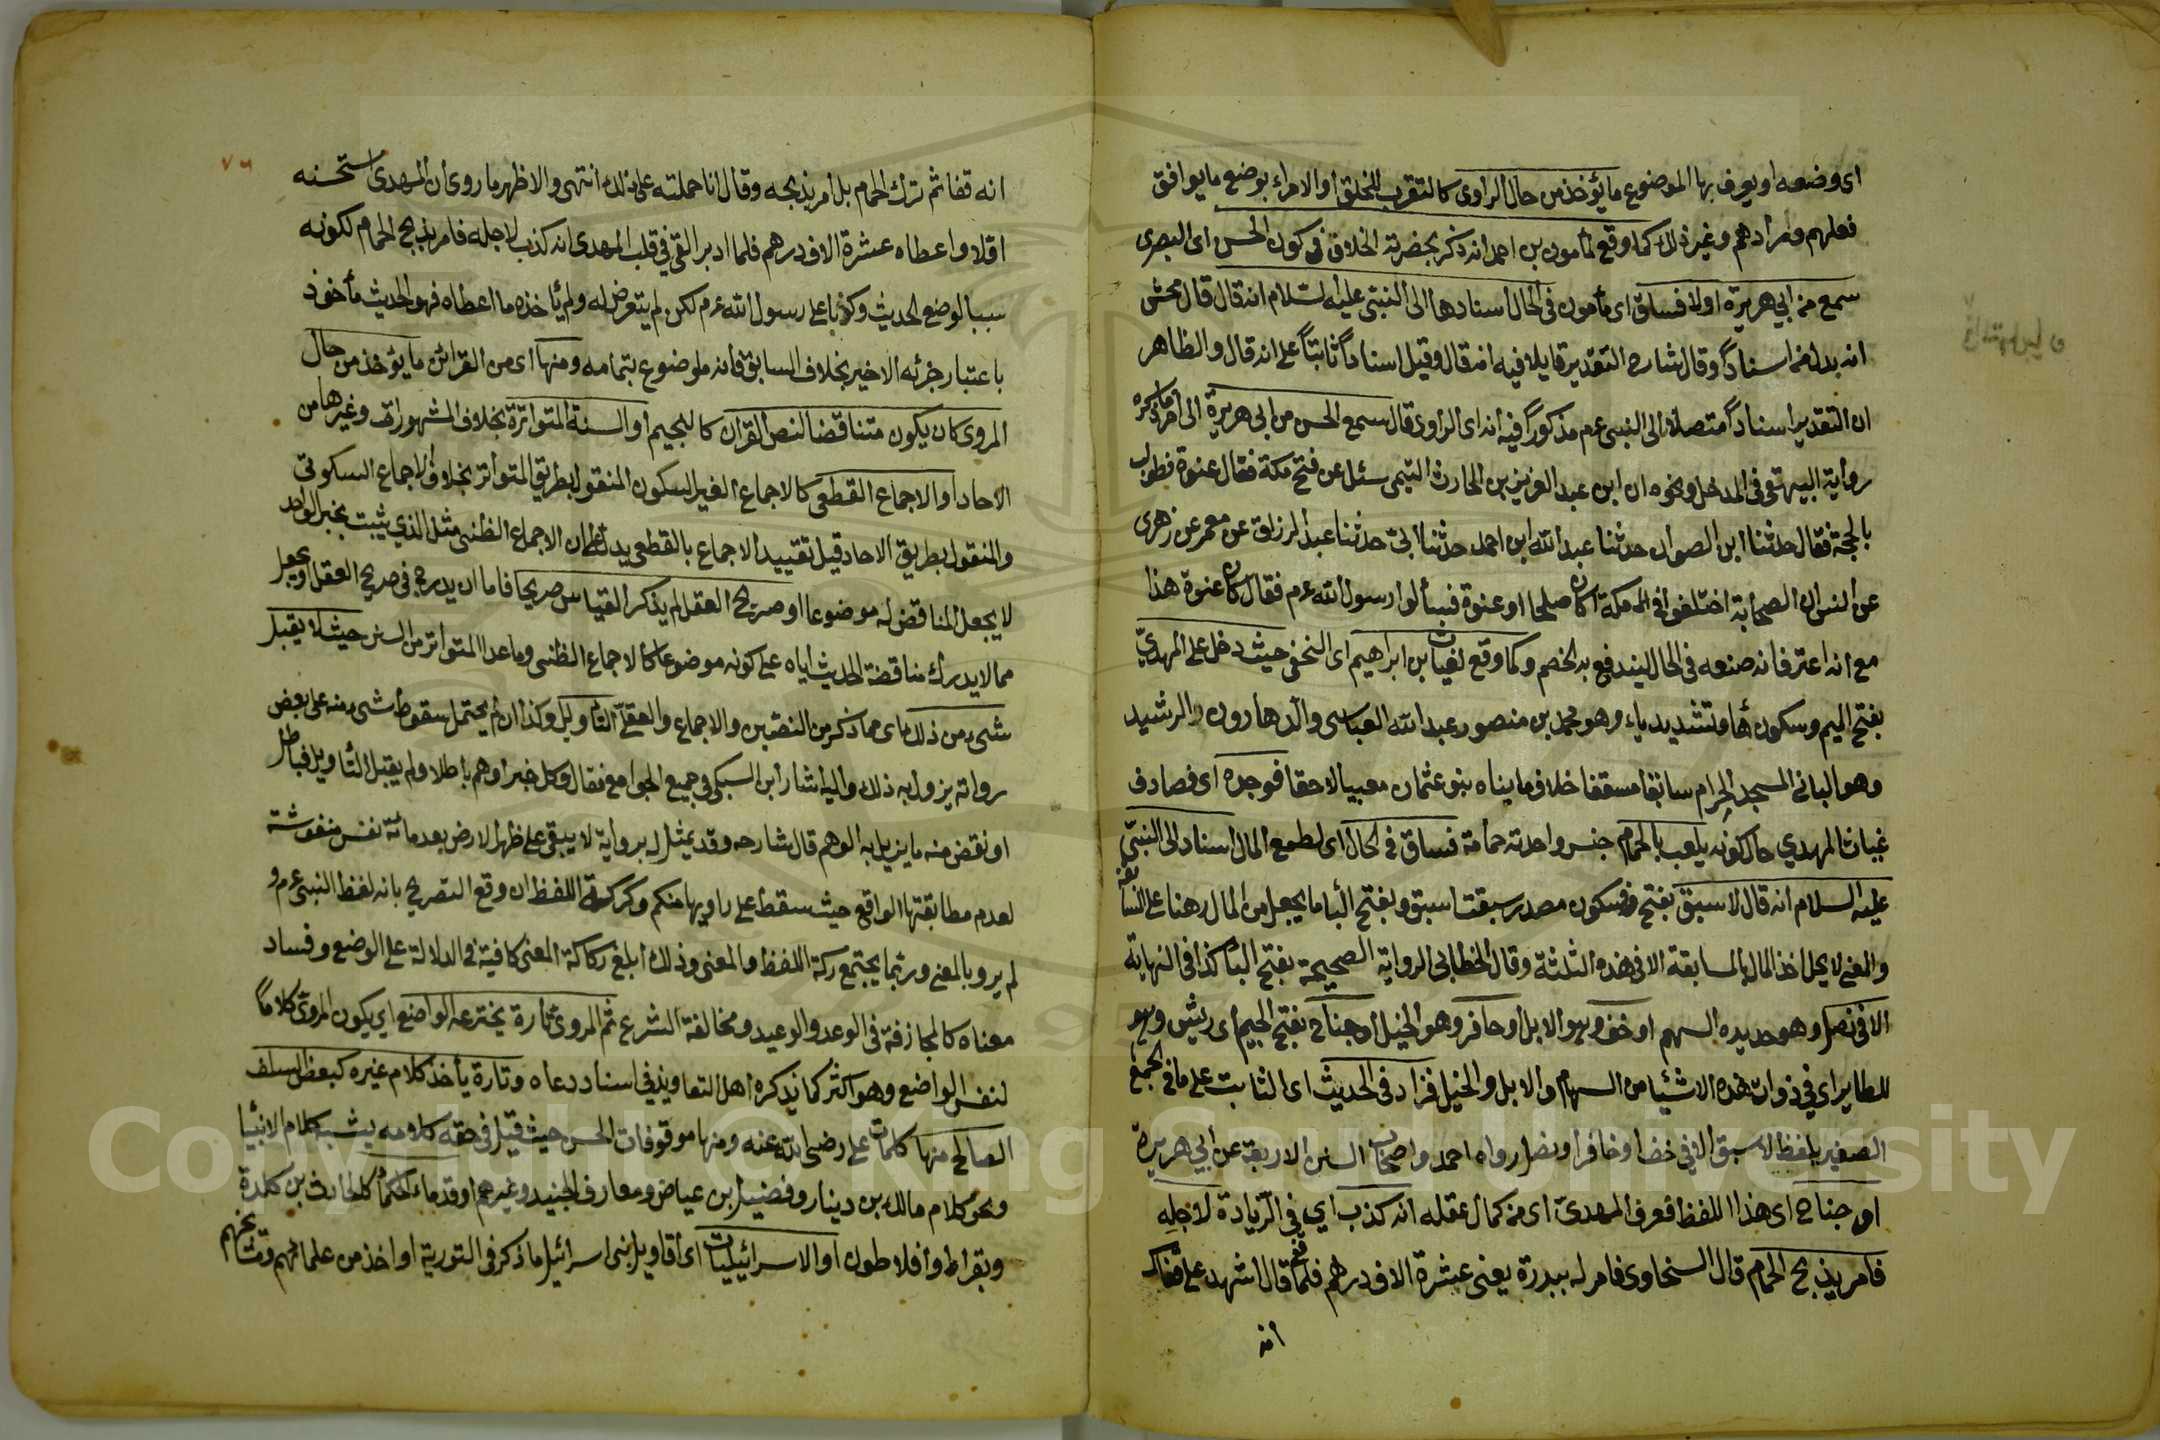 اى وضعه او يعرف بها الموضوع ما يؤخذ من حال الراوى كالتقرب للخلق او الامراء بوضع ما يوافق
فعلهم ومرادهم وغير ذلك كما وقع لمأمون بن احمد انه ذكر بحضرته الخلاف فى كون الحسن اى البصرى
سمع من ابي هريرة او لا فساق اى مأمون فى الحال اسنادها الى النبى عليه السلام انه قال قال محش
انه بدل من اسناداً وقال شارح التقدير قايلا فيه انه قال وقيل اسناداً ثابتاً على انه قال والظاهر
ان التقدير اسناداً متصلاً الى النبى عم مذكوراً فيه انه اى الراوى قال سمع الحسن من ابى هريرة الى اخر ما ذكره
رواية البيهقى فى المدخل ونحوه ان ابن عبد العزيز بن الحارث التيمى سئل عن فتح مكة فقال عنوة فطولب
بالحجة فقال حدثنا ابن الصواف حدثنا عبد الله ابن احمد حدثنا ابى حدثنا عبد الرزاق عن معمر عن زهرى
عن انس ان الصحابة اختلفوا فى مكة اكان صلحا او عنوة فسألوا رسول الله عم فقال كان عنوة هذا
مع انه اعترف انه صنعه فى الحال ليندفع به الخصم وكما وقع لغياث بن ابراهيم اى النخعى حيث دخل على المهدىّ
بفتح الميم وسكون هاء وتشديد ياء وهو محمد بن منصور عبد الله العباسى والد هارون الرشيد
وهو البانى المسجد الحرام سابقا مسقفا خلاف ما بناه بنو عثمان مقببا لاحقا فوجده اى فصادف
غياث المهدي حال كونه يلعب بالحمام جنس واحدته حمامة فساق فى الحال اى لطمع المال اسنادا الى النبىّ
عليه السلام انه قال لا سبق بفتح فسكون مصدر سبقت اسبق وبفتح الباء ما يجعل من المال رهنا على المسابقة
والمعنى لا يحل اخذ المال بالمسابقة الا فى هذه الثلثة وقال الخطابى الرواية الصحيحة بفتح الباء كذا فى النهاية
الا فى نصل وهو حديده السهم او خف وهو الابل او حافر وهو الخيل او جناح بفتح الجيم اى ريش وهو
للطاير اى فى ذوات هذه الاشياء من السهام والابل والخيل فزاد فى الحديث اى الثابت على ما فى الجمع
الصغير بلفظ لا سبق الا فى خف او حافر او نصل رواه احمد واصحاب السنن الاربعة عن ابي هريرة
او جناح اى هذا اللفظ فعرف المهدىّ اى من كمال عقله انه كذب اي فى الزيادة لاجله
فامر بذبح الحمام قال السخاوى فامر له ببدرة يعنى عشرة الاف درهم فلما قفى قال اشهد على قفاك
انه
انه قفا ثم ترك الحمام بل امر بذبحه وقال انا حملته على ذلك انتهى والاظهر ما روى ان المهدى استحسنه
اولا واعطاه عشرة الاف درهم فلما ادبر القى فى قلب المهدى انه كذب لاجله فامر بذبح الحمام لكونه
سببا لوضع الحديث وكذبا على رسول الله عم لكن لم يتعرض له ولم يأخذ منه ما اعطاه فهو الحديث مأخوذ
باعتبار جزئه الاخير بخلاف السابق فانه موضوع بتمامه ومنها اى من القرائن ما يؤخذ من حال
المروى كان يكون متناقضا لنص القران كالتجسيم او السنة المتواترة بخلاف المشهورات وغيرها من
الاحاد او الاجماع القطعى كالاجماع الغير السكوتى المنقول بطريق المتواتر بخلاف الاجماع السكوتى
والمنقول بطريق الاحاد قيل تقييد الاجماع بالقطعى يدل على ان الاجماع الظنى مثل الذى يثبت بخبر الواحد
لا يجعل المناقض له موضوعا او صريح العقل لم يذكر القياس صريحا فاما ان يدرج فى صريح العقل او يجعل
مما لا يدرك مناقضة الحديث اياه على كونه موضوعا كالاجماع الظنى وما عدا المتواتر من السنن حيث لا يقبل
شىء من ذلك اى مما ذكر من النصين والاجماع والعقل التأويل وكذا ان لم يحتمل سقوط شىء منه على بعض
رواته يزول به ذلك واليه اشار ابن السبكى فى جمع الجوامع فقال وكل خبر اوهم باطلا ولم يقبل التأويل فباطل
او نقص منه ما يزيل به الوهم قال شارحه وقد يمثل له برواية لا يبقى على ظهر الارض بعد مائة نفس منفوسة
لعدم مطابقتها الواقع حيث سقط على راويها منكم وكركة اللفظ ان وقع التصريح بانه لفظ النبى عم و
لم يرو بالمعنى وربما يجتمع ركة اللفظ والمعنى وذلك ابلغ ركاكة المعنى كافية فى الدلالة على الوضع وفساد
معناه كالمجازفة فى الوعد والوعيد ومخالفة الشرع ثم المروىّ تارة يخترعه الواضع اى يكون المروىّ كلاماً
لنفس الواضع وهو اكثر كما يذكره اهل التعاويذ فى اسناد دعاه وتارة يأخذ كلام غيره كبعض السلف
الصالح منها كلمات على رضى الله عنه ومنها موقوفات الحسن حيث قيل فى حقه كلامه يشبه كلام الانبيا
ونحو كلام مالك بن دينار وفضيل بن عياض ومعارف الجنيد وغيرهم او قدماء الحكماء كالحارث بن كلدة
وبقراط وافلاطون او الاسرائيليات اى اقاويل بنى اسرائيل ما ذكر فى التورية او اخذ من علمائهم ومشائخهم
Copyright © King Saud University